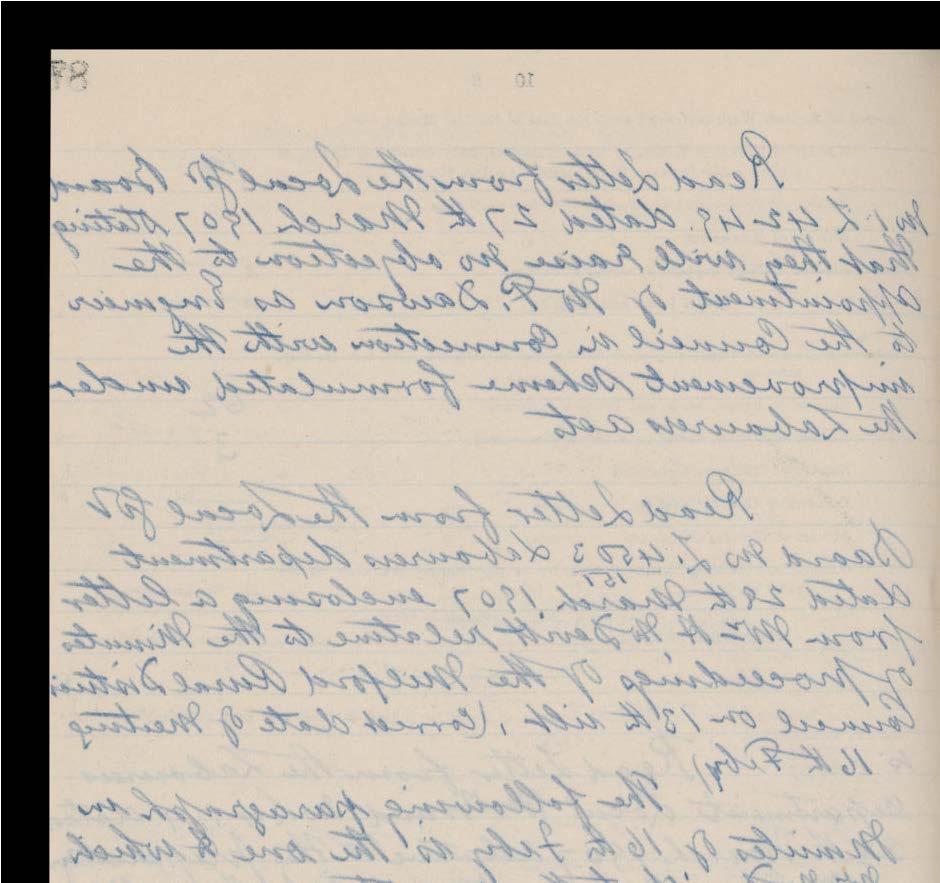 87
10
Read Letter from the Local Gt Board
No. Z 4249. dated 27th March 1907 stating
that they will raise no objection to the
appointment of Mr P. Dawson as Engineer
to the Council in Connection with the
improvement scheme formulated under
the Labourers acts
Read Letter from the Local Gt
Board No Z. 4503/151 Labourers department
dated 28th March 1907 enclosing a letter
from Mr H McDevitt relative to the Minutes
of proceedings of the Milford Rural District
Council on 13th ult, (Correct date of Meeting
16th Feby)
The following paragraph in
Minutes of 16th Feby is the one to which